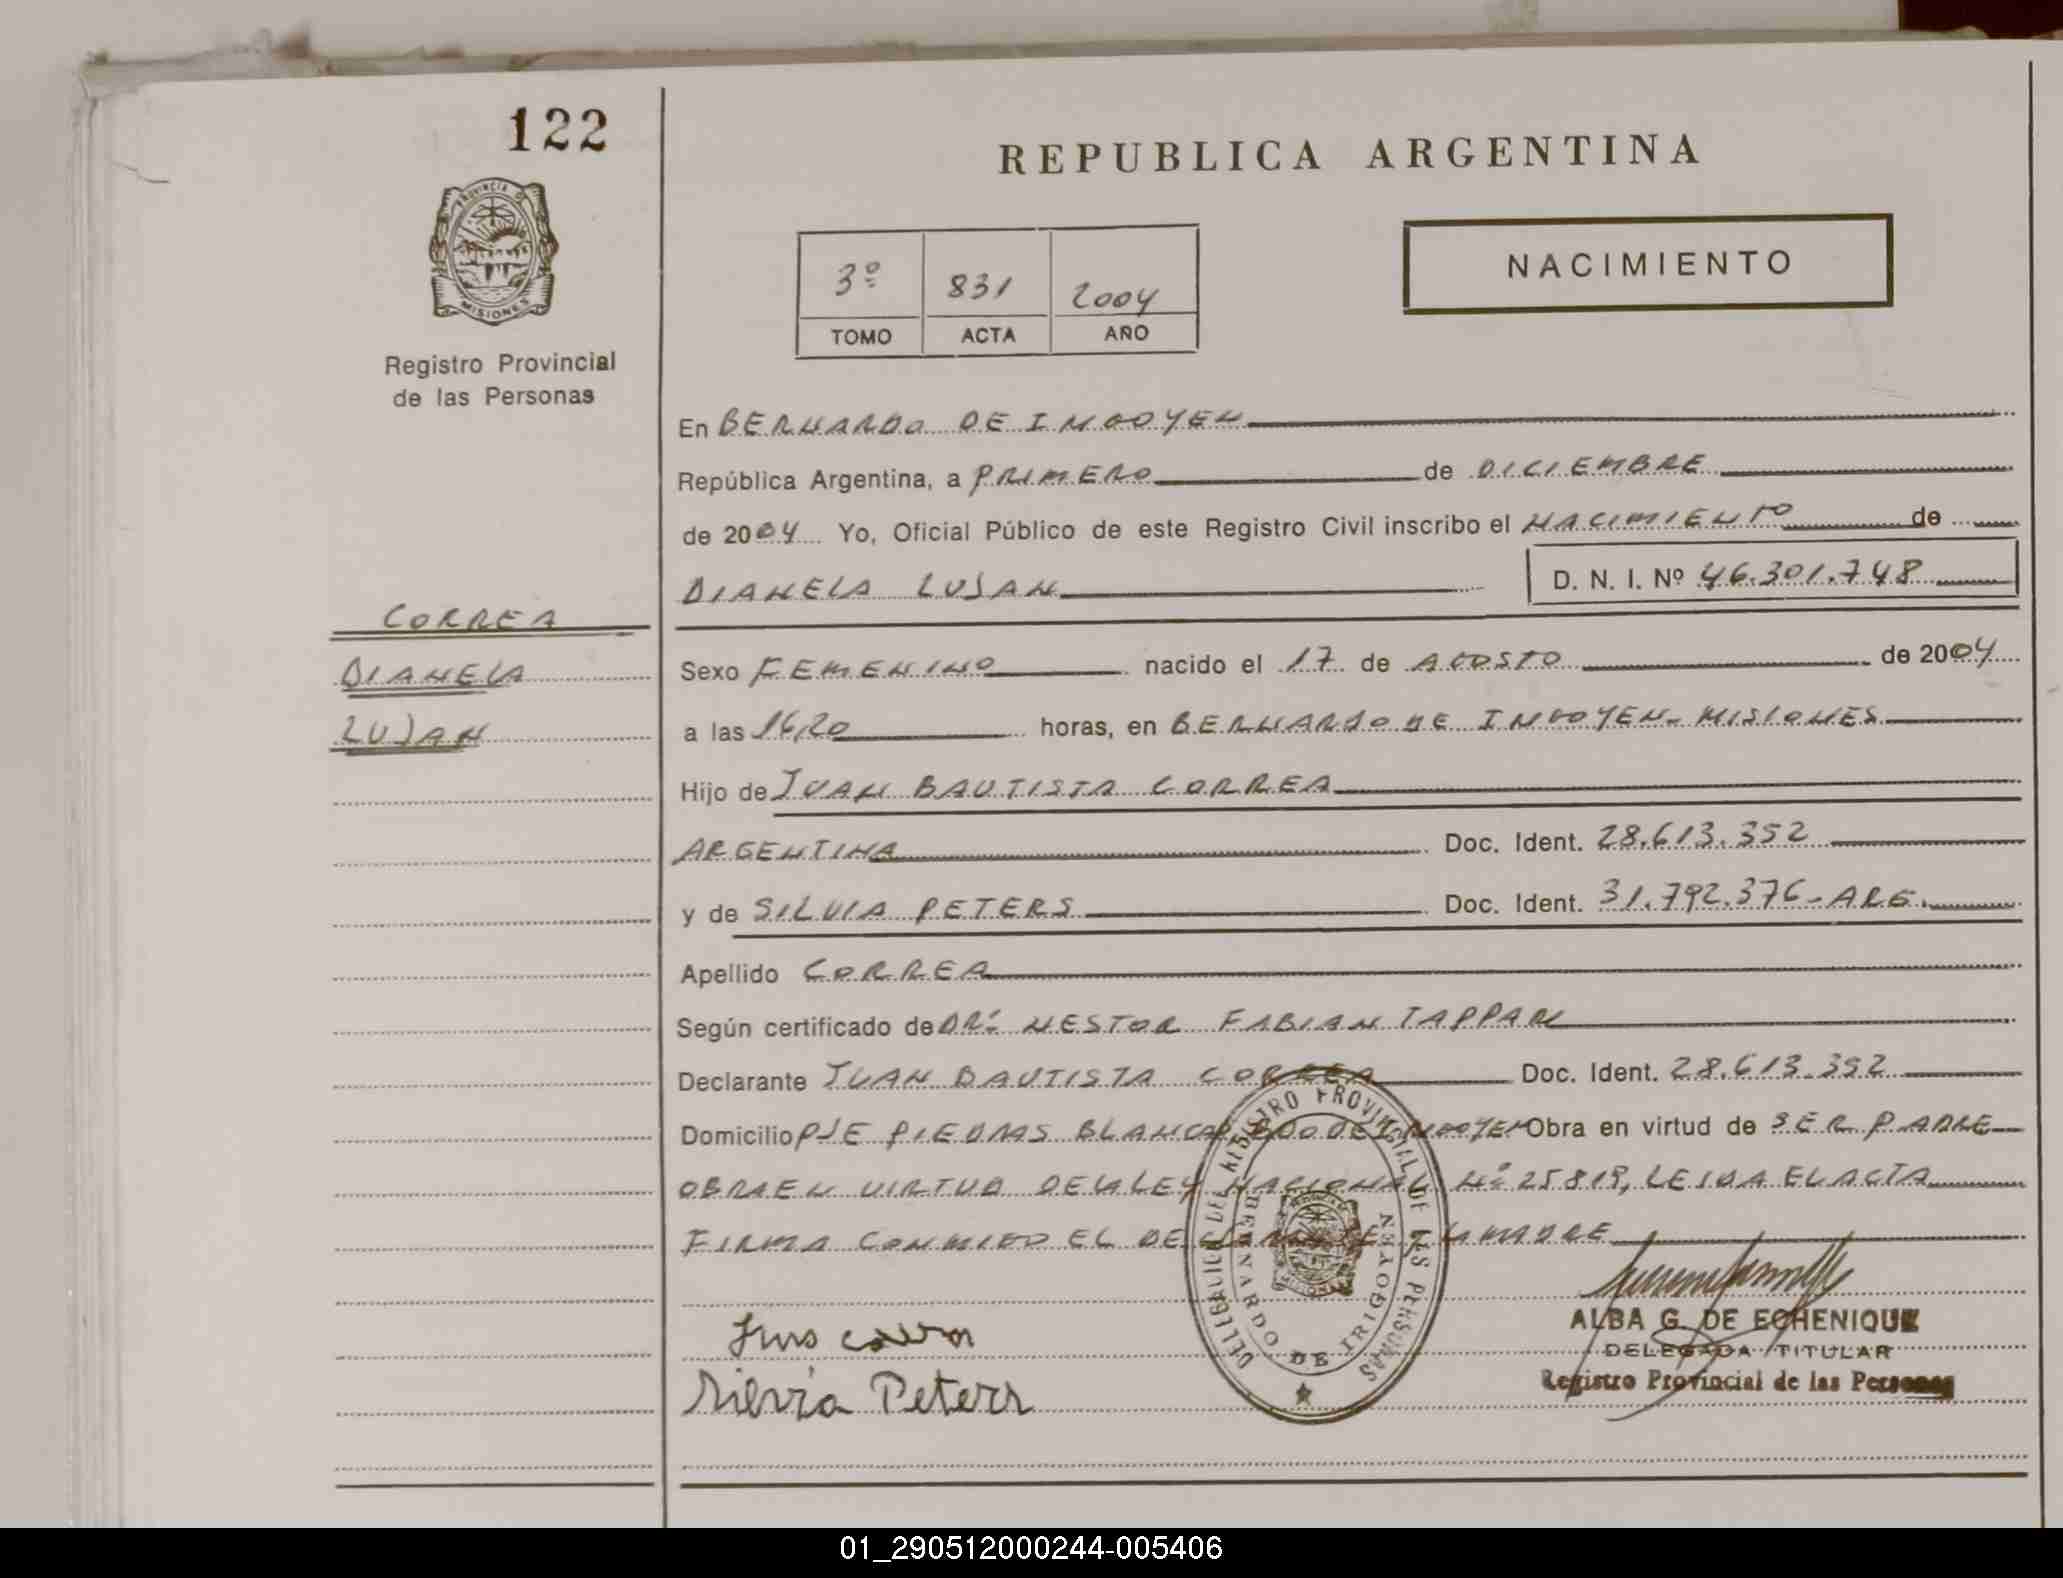 122
REPUBLICA ARGENTINA
PROVINCIA DE
MISIONES
Registro Provincial
de las Personas
3º 831 2004
TOMO ACTA AÑO
NACIMIENTO
En BERNARDO DE IRIGOYEN
República Argentina, a PRIMERO de DICIEMBRE
de 2004 Yo, Oficial Público de este Registro Civil inscribo el NACIMIENTO de
DIANELA LUJAN D. N. I. Nº 46.301.748
CORREA
DIANELA
LUJAN
Sexo FEMENINO nacido el 17 de AGOSTO de 2004
a las 16,20 horas, en BERNARDO DE IRIGOYEN - MISIONES
Hijo de JUAN BAUTISTA CORREA
ARGENTINA Doc. Ident. 28.613.352
y de SILVIA PETERS Doc. Ident. 31.792.376 - ARG.
Apellido CORREA
Según certificado de DR. NESTOR FABIAN TAPPARI
Declarante JUAN BAUTISTA CORREA Doc. Ident. 28.613.352
Domicilio PJE PIEDRAS BLANCAS, BDO DE IRIGOYEN Obra en virtud de SER PADRE
OBRA EN VIRTUD DE LA LEY NACIONAL Nº 25819, LEIDA EL ACTA
FIRMA CONMIGO EL DECLARANTE Y LA MADRE
DELEGACION DEL REGISTRO PROVINCIAL DE LAS PERSONAS
BERNARDO DE IRIGOYEN
Silvia Peters
ALBA G. DE ECHENIQUE
DELEGADA TITULAR
Registro Provincial de las Personas
01_290512000244-005406